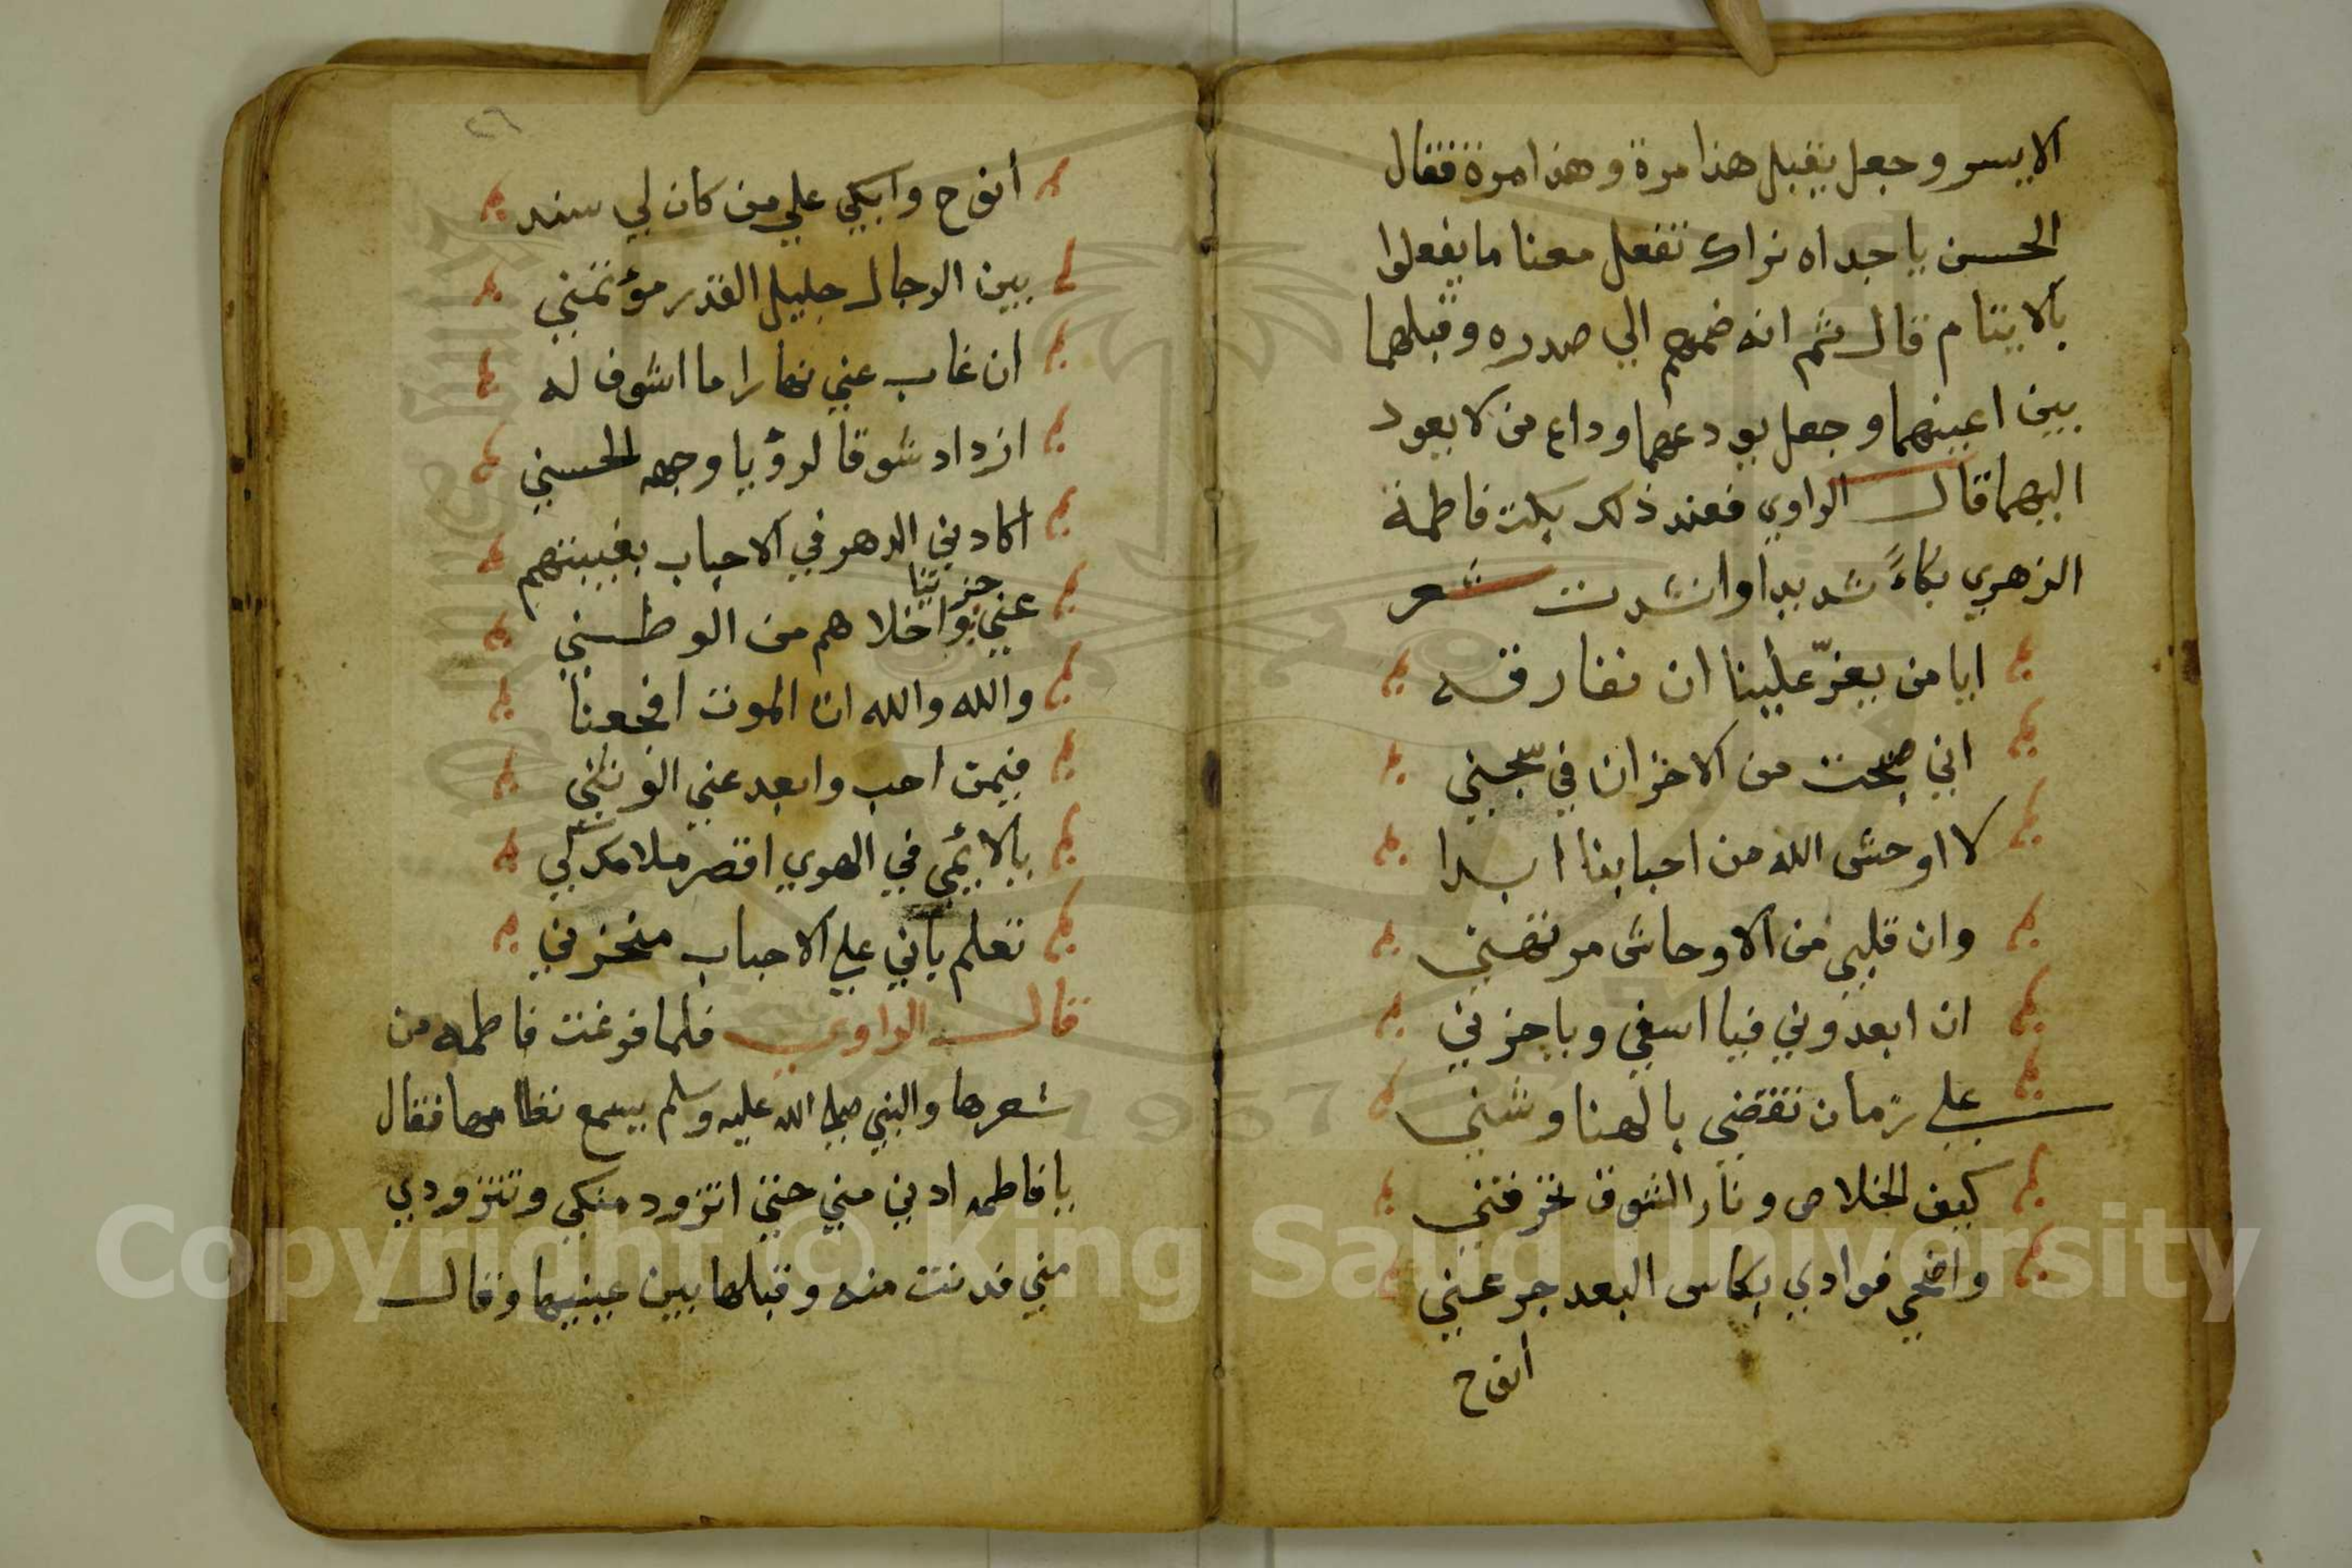 الايسر وجعل يقبل هذا مرة وهذا مرة فقال
الحسن يا جداه نراك تفعل معنا ما يفعلوا
بالايتام قال ثم انه ضمهم الي صدره وقبلهما
بين اعينهما وجعل يودعهما وداع من لا يعود
اليهما قال الراوي فعند ذلك بكت فاطمة
الزهري بكاءً شديدا وانشدت شعر
ايا من يعزّ علينا ان نفارقه
اني صبحت من الاحزان في سجني
لا اوحش الله من احبابنا ابدا
وان قلبي من الاوحاش مرتهني
ان ابعدوني فيا اسفي ويا حزني
علي زمان تقضي بالهنا وشني
كيف الخلاص ونار الشوق تحرقني
واضحي فوادي بكاس البعد جرعني
أنوح
٢٦
أنوح وابكي علي من كان لي سند
بين الرجال جليل القدر مؤتمني
ان غاب عني نهارا ما اشوف له
ازداد شوقا لرؤيا وجهه الحسني
اكادني الدهر في الاحباب بغيبتهم
عني واخلاهم من الوطني
والله والله ان الموت افجعنا
فيمن احب وابعد عني
يالايمي في الهوي اقصر ملامك لي
تعلم باني علي الاحباب منحزني
قال الراوي فلما فرغت فاطمه من
شعرها والنبي صلي الله عليه وسلم يسمع نظامها فقال
يا فاطمه ادني مني حتى اتزود منكي وتتزودي
مني فدنت منه وقبلها بين عينيها وقال
1957
Copyright © King Saud University